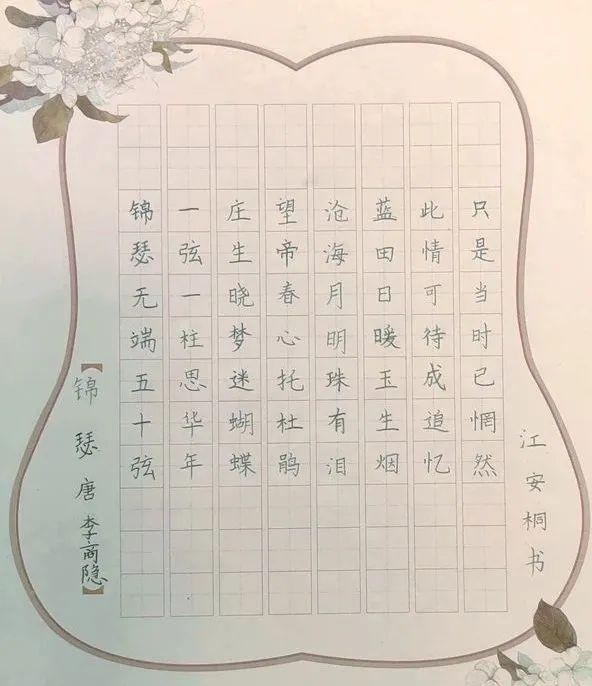 【锦瑟 唐 李商隐】
锦瑟无端五十弦
一弦一柱思华年
庄生晓梦迷蝴蝶
望帝春心托杜鹃
沧海月明珠有泪
蓝田日暖玉生烟
此情可待成追忆
只是当时已惘然
江安桐书